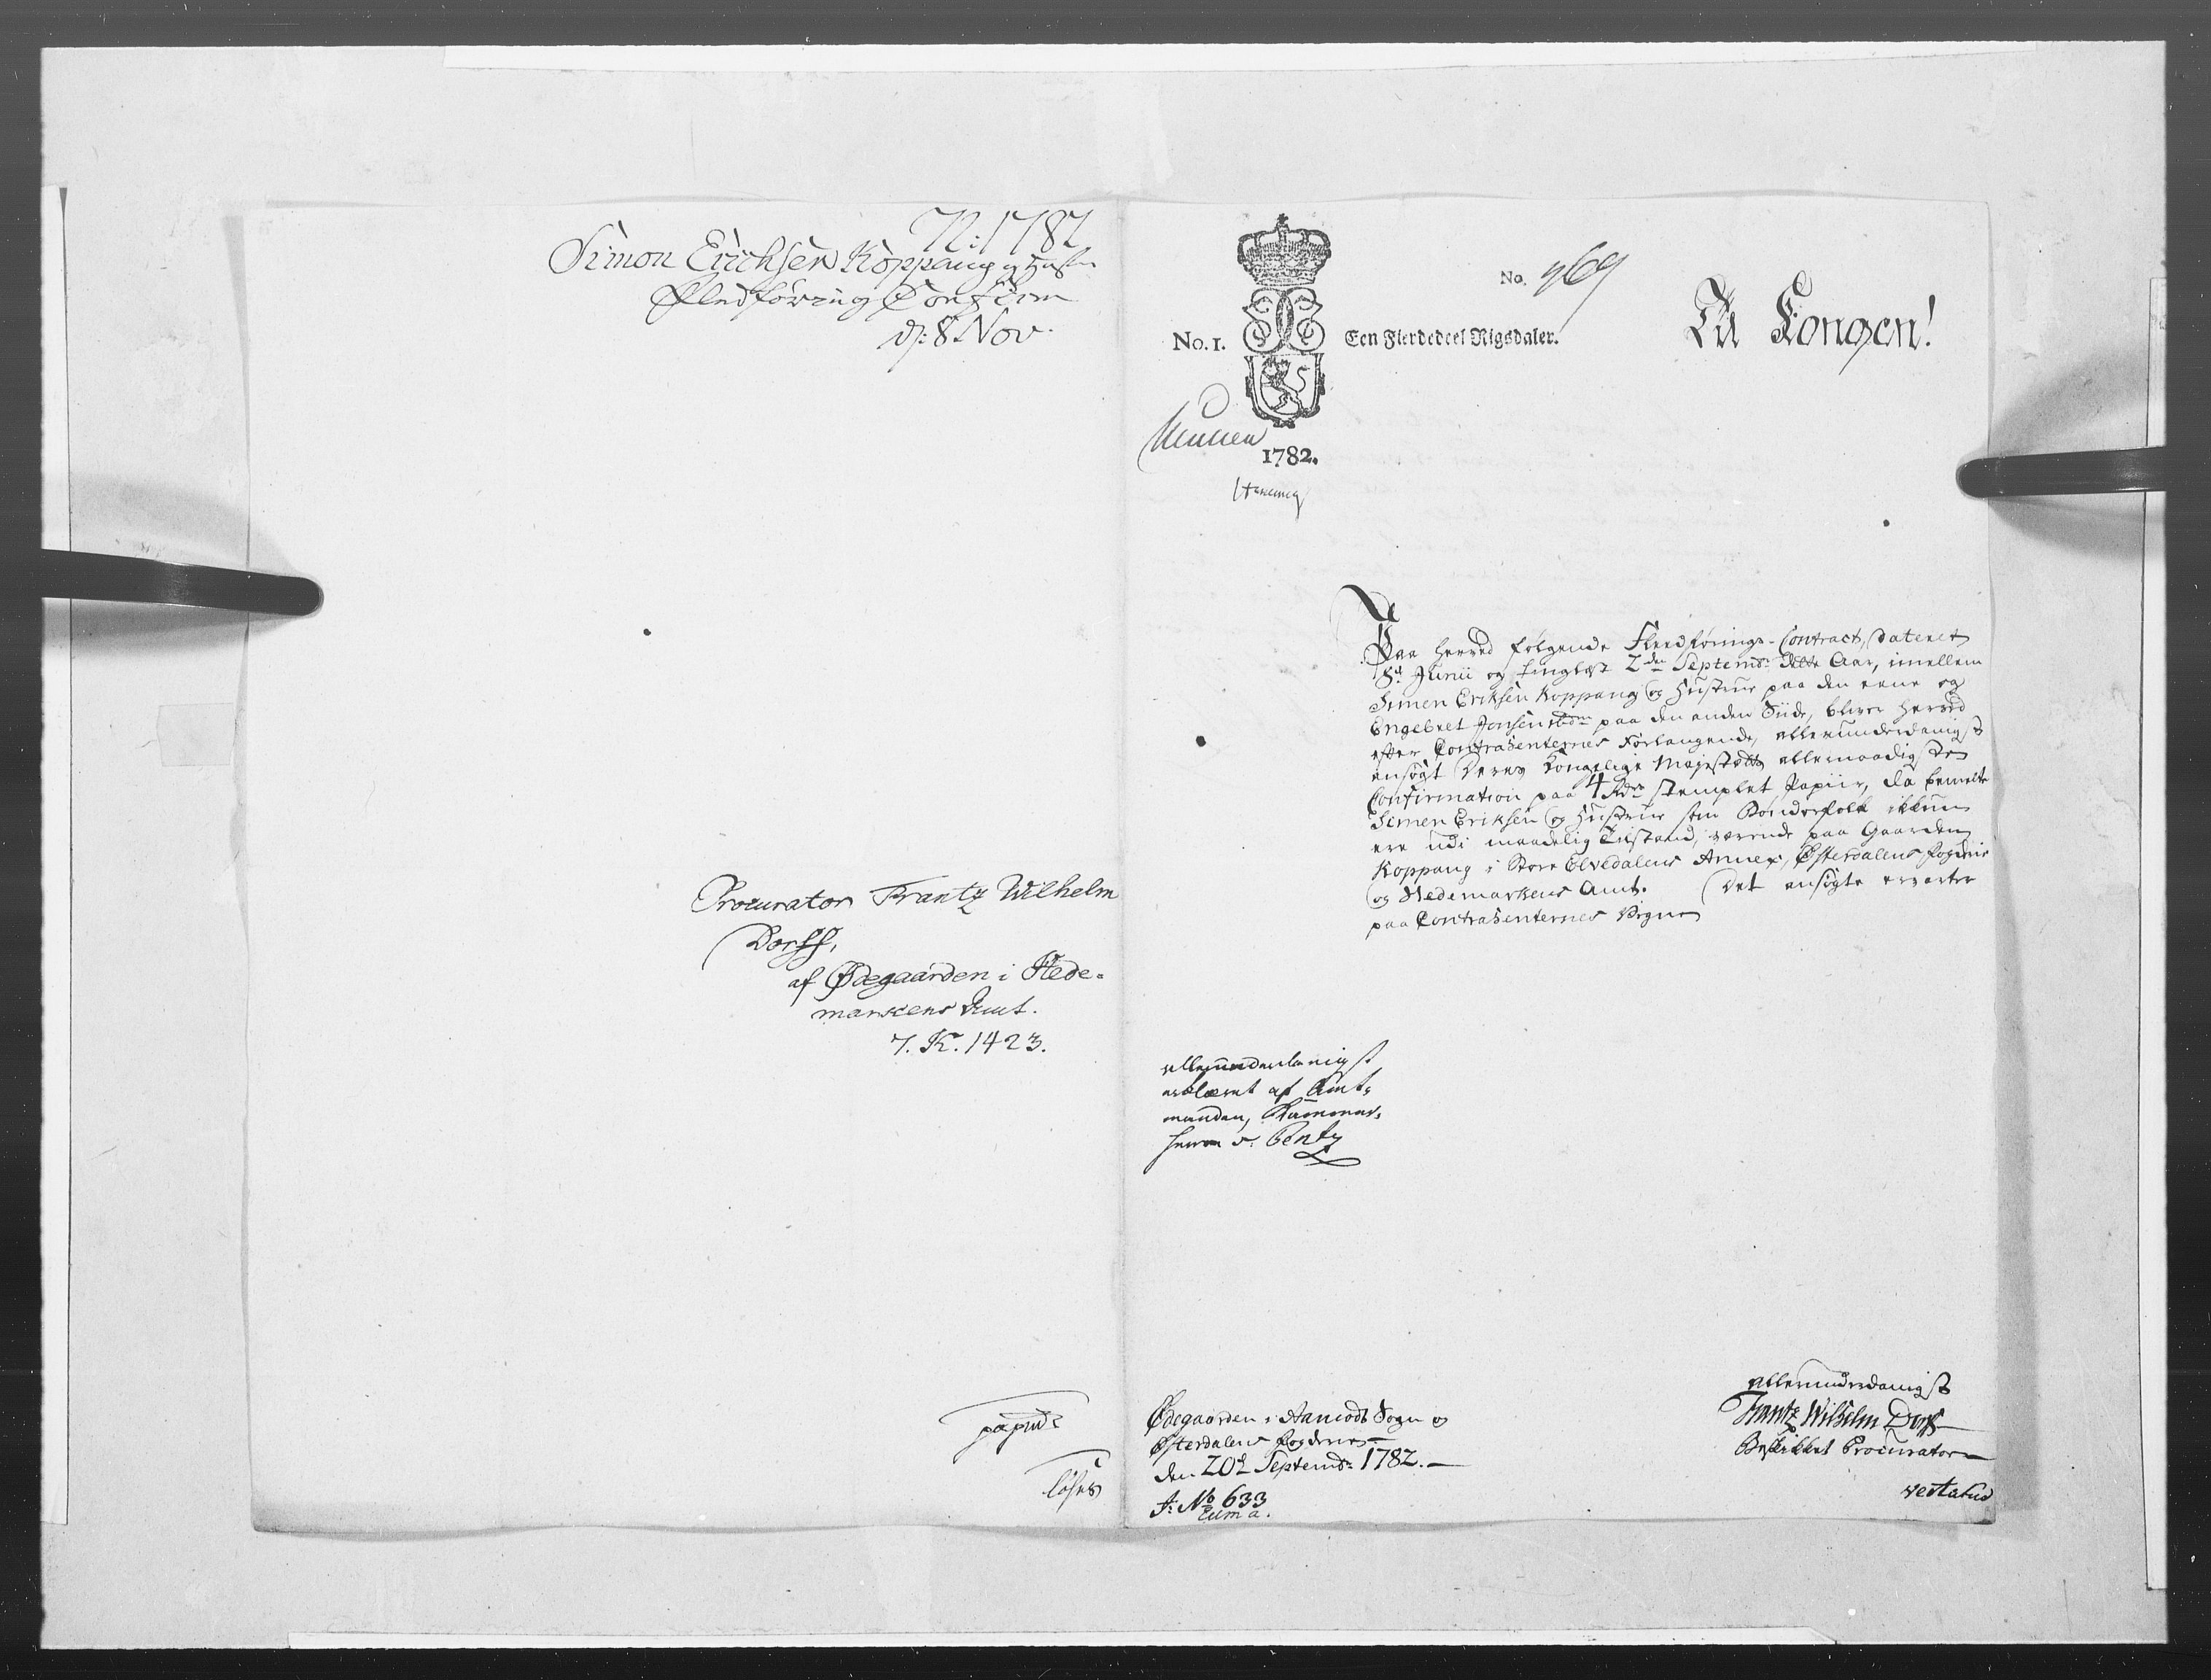 72: 1782
Simon Erichsen Koppang og Hustr
Fledføring Confirm
d: 8 Nov.
Procurator Frantz Wilhelm
Dorff,
af Ødegaarden i Hede-
markens Amt.
7. K. 1423.
No. 769
Til Kongen!
No. 1. Een Fierdedeel Rigsdaler.
1782.
Paa herved følgende Fledførings-Contract, dateret
8d Junii og tinglæst 2den Septembr dette Aar, imellem
Simen Eriksen Koppang og Hustrue paa den eene og
Engebret Jonsen ibdm paa den anden Siide, bliver herved
efter Contrahenternes Forlangende, allerunderdanigst
ansøgt Deres Kongelige Majestætts allernaadigste
Confirmation paa 4 Rdrs stemplet Papiir, da bemelte
Simen Eriksen og Hustrue som Bønderfolk ikkun
ere udi maadelig Tilstand, værende paa Gaarden
Koppang i Store Elvedalens Annex, Østerdalens Fogderie
og Hedemarkens Amt. Det ansøgte ervarter
paa Contrahenternes Vegne
allerunderdanigst
erklæret af Amt-
manden, Kammer-
herre v: Pentz
Ødegaarden i Aamodts Sogn og
Østerdalens Fogderie
den 20d Septembr 1782.
J: No 633
cum a.
allerunderdanigst
Frantz Wilhelm Dorff
Beskikket Procurator